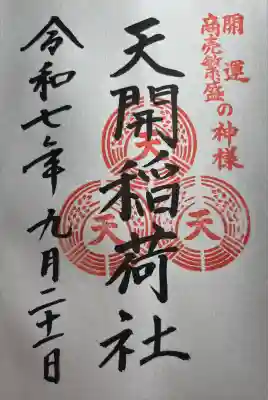 開運
商売繁盛の神様
天開稲荷社
天
天
天
令和七年九月二十一日